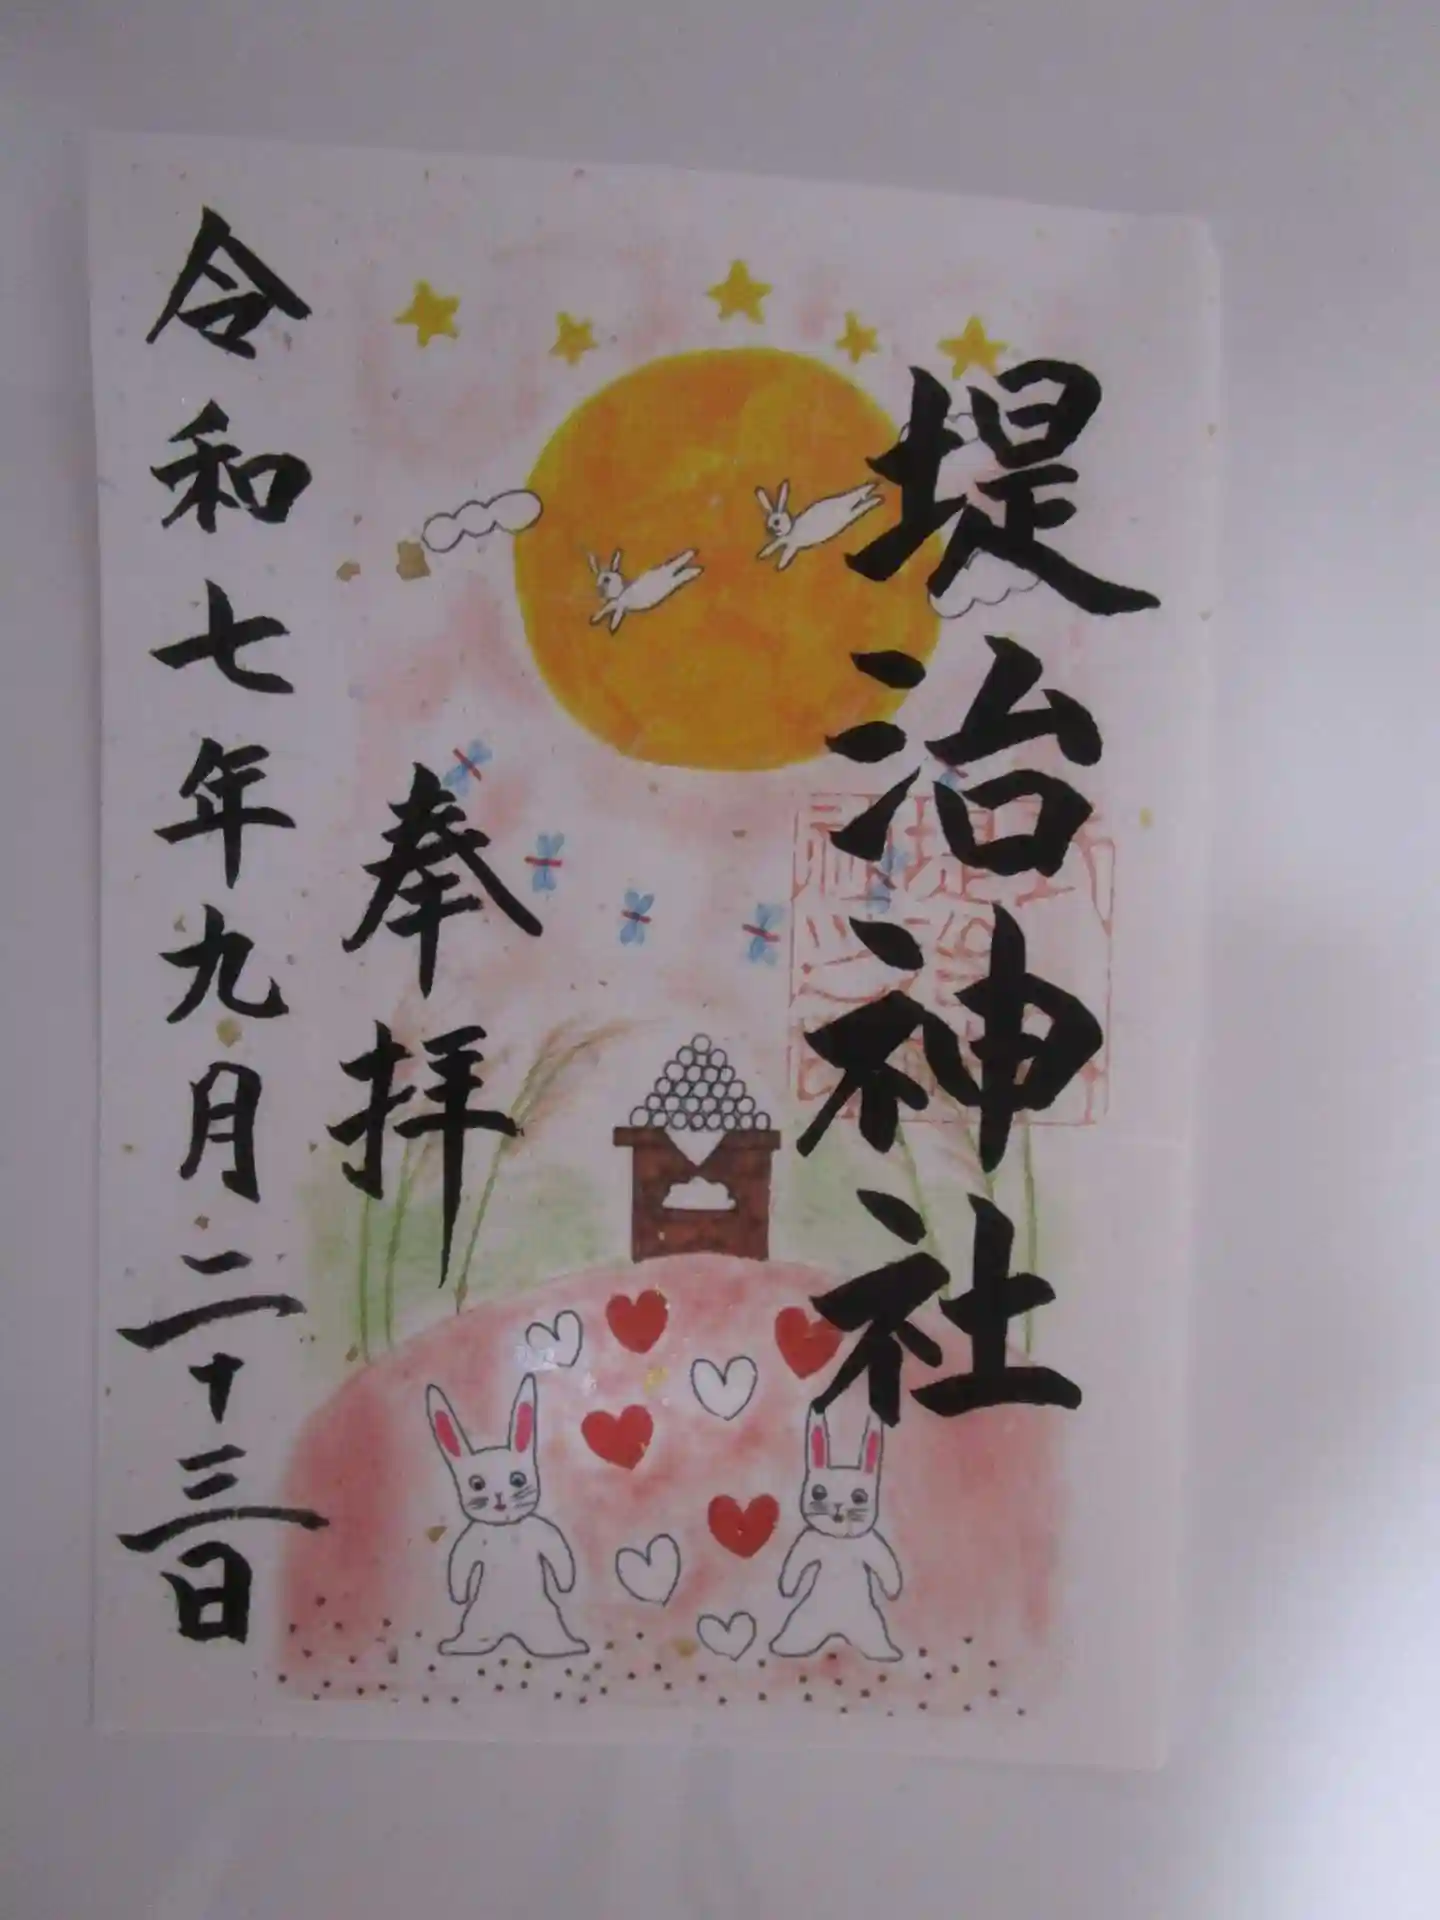 堤治神社
奉拝
令和七年九月二十三日